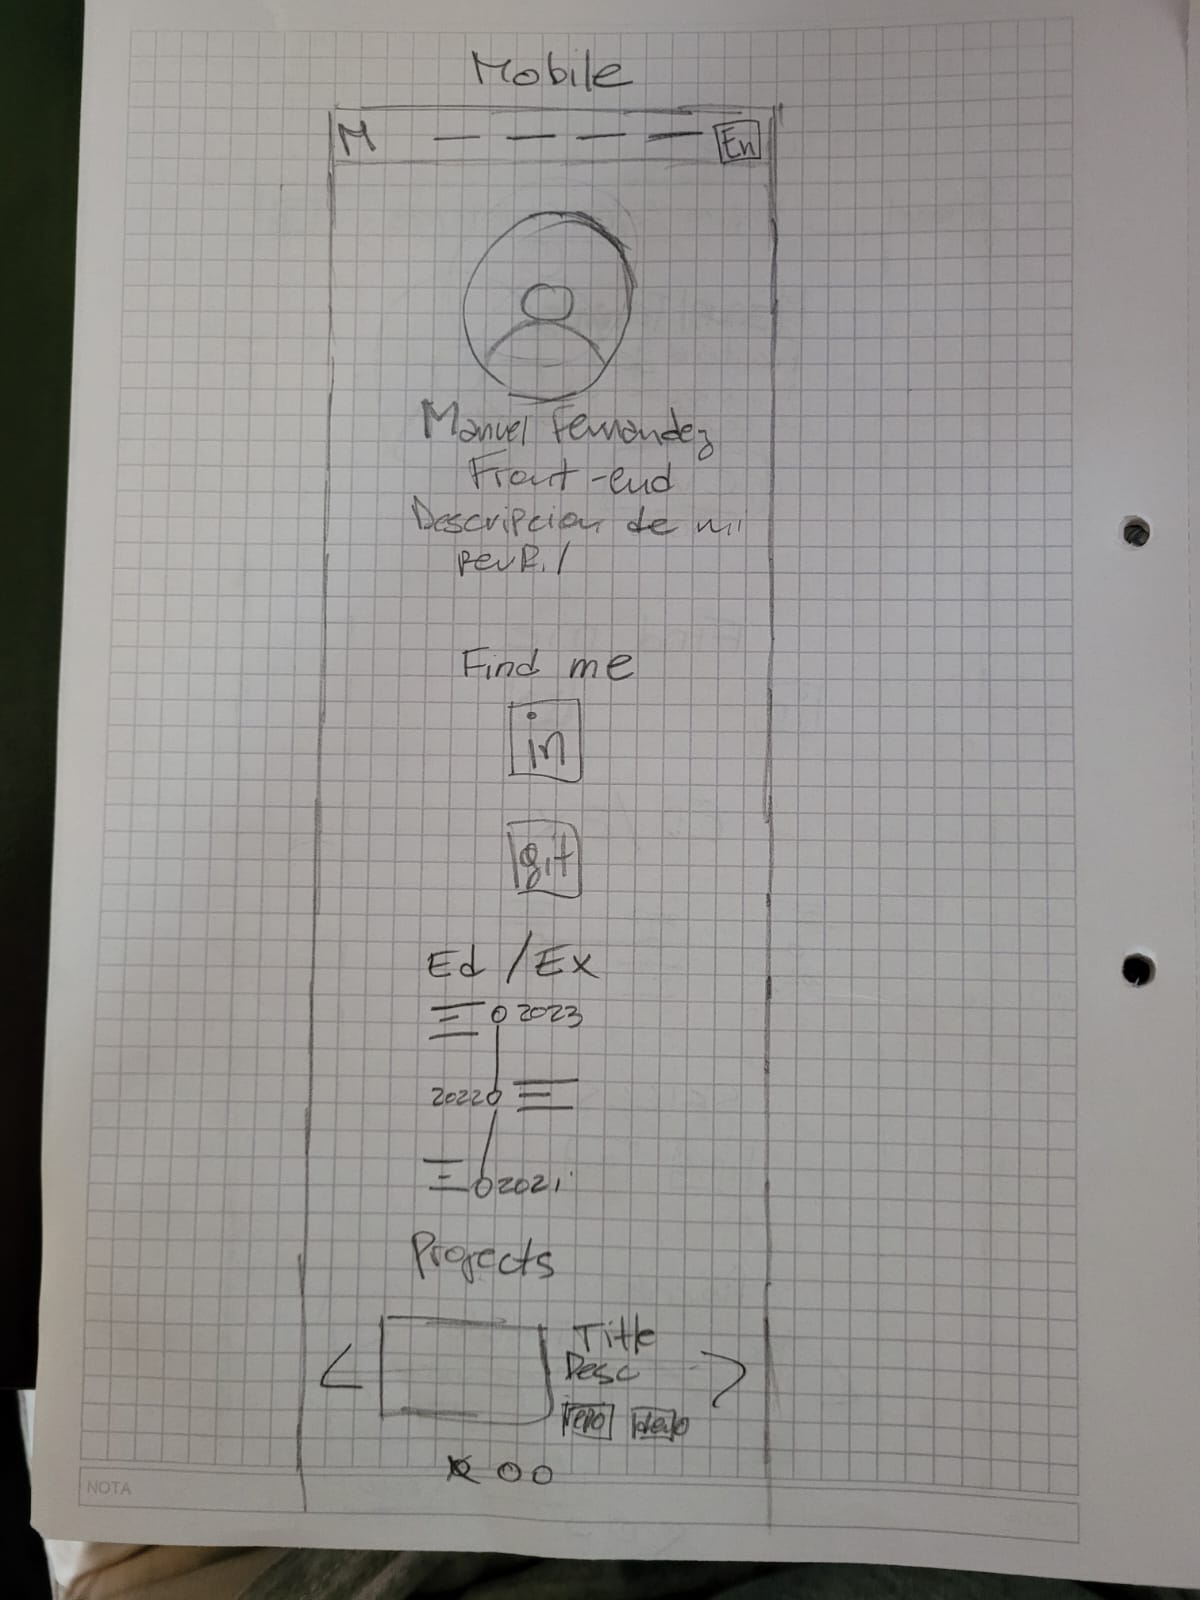 Mobile
M
En
Manuel Fernandez
Front-end
Descripcion de mi
perfil
Find me
in
git
Ed / Ex
2023
2022
2021
Projects
< Title >
Desc
repo demo
NOTA